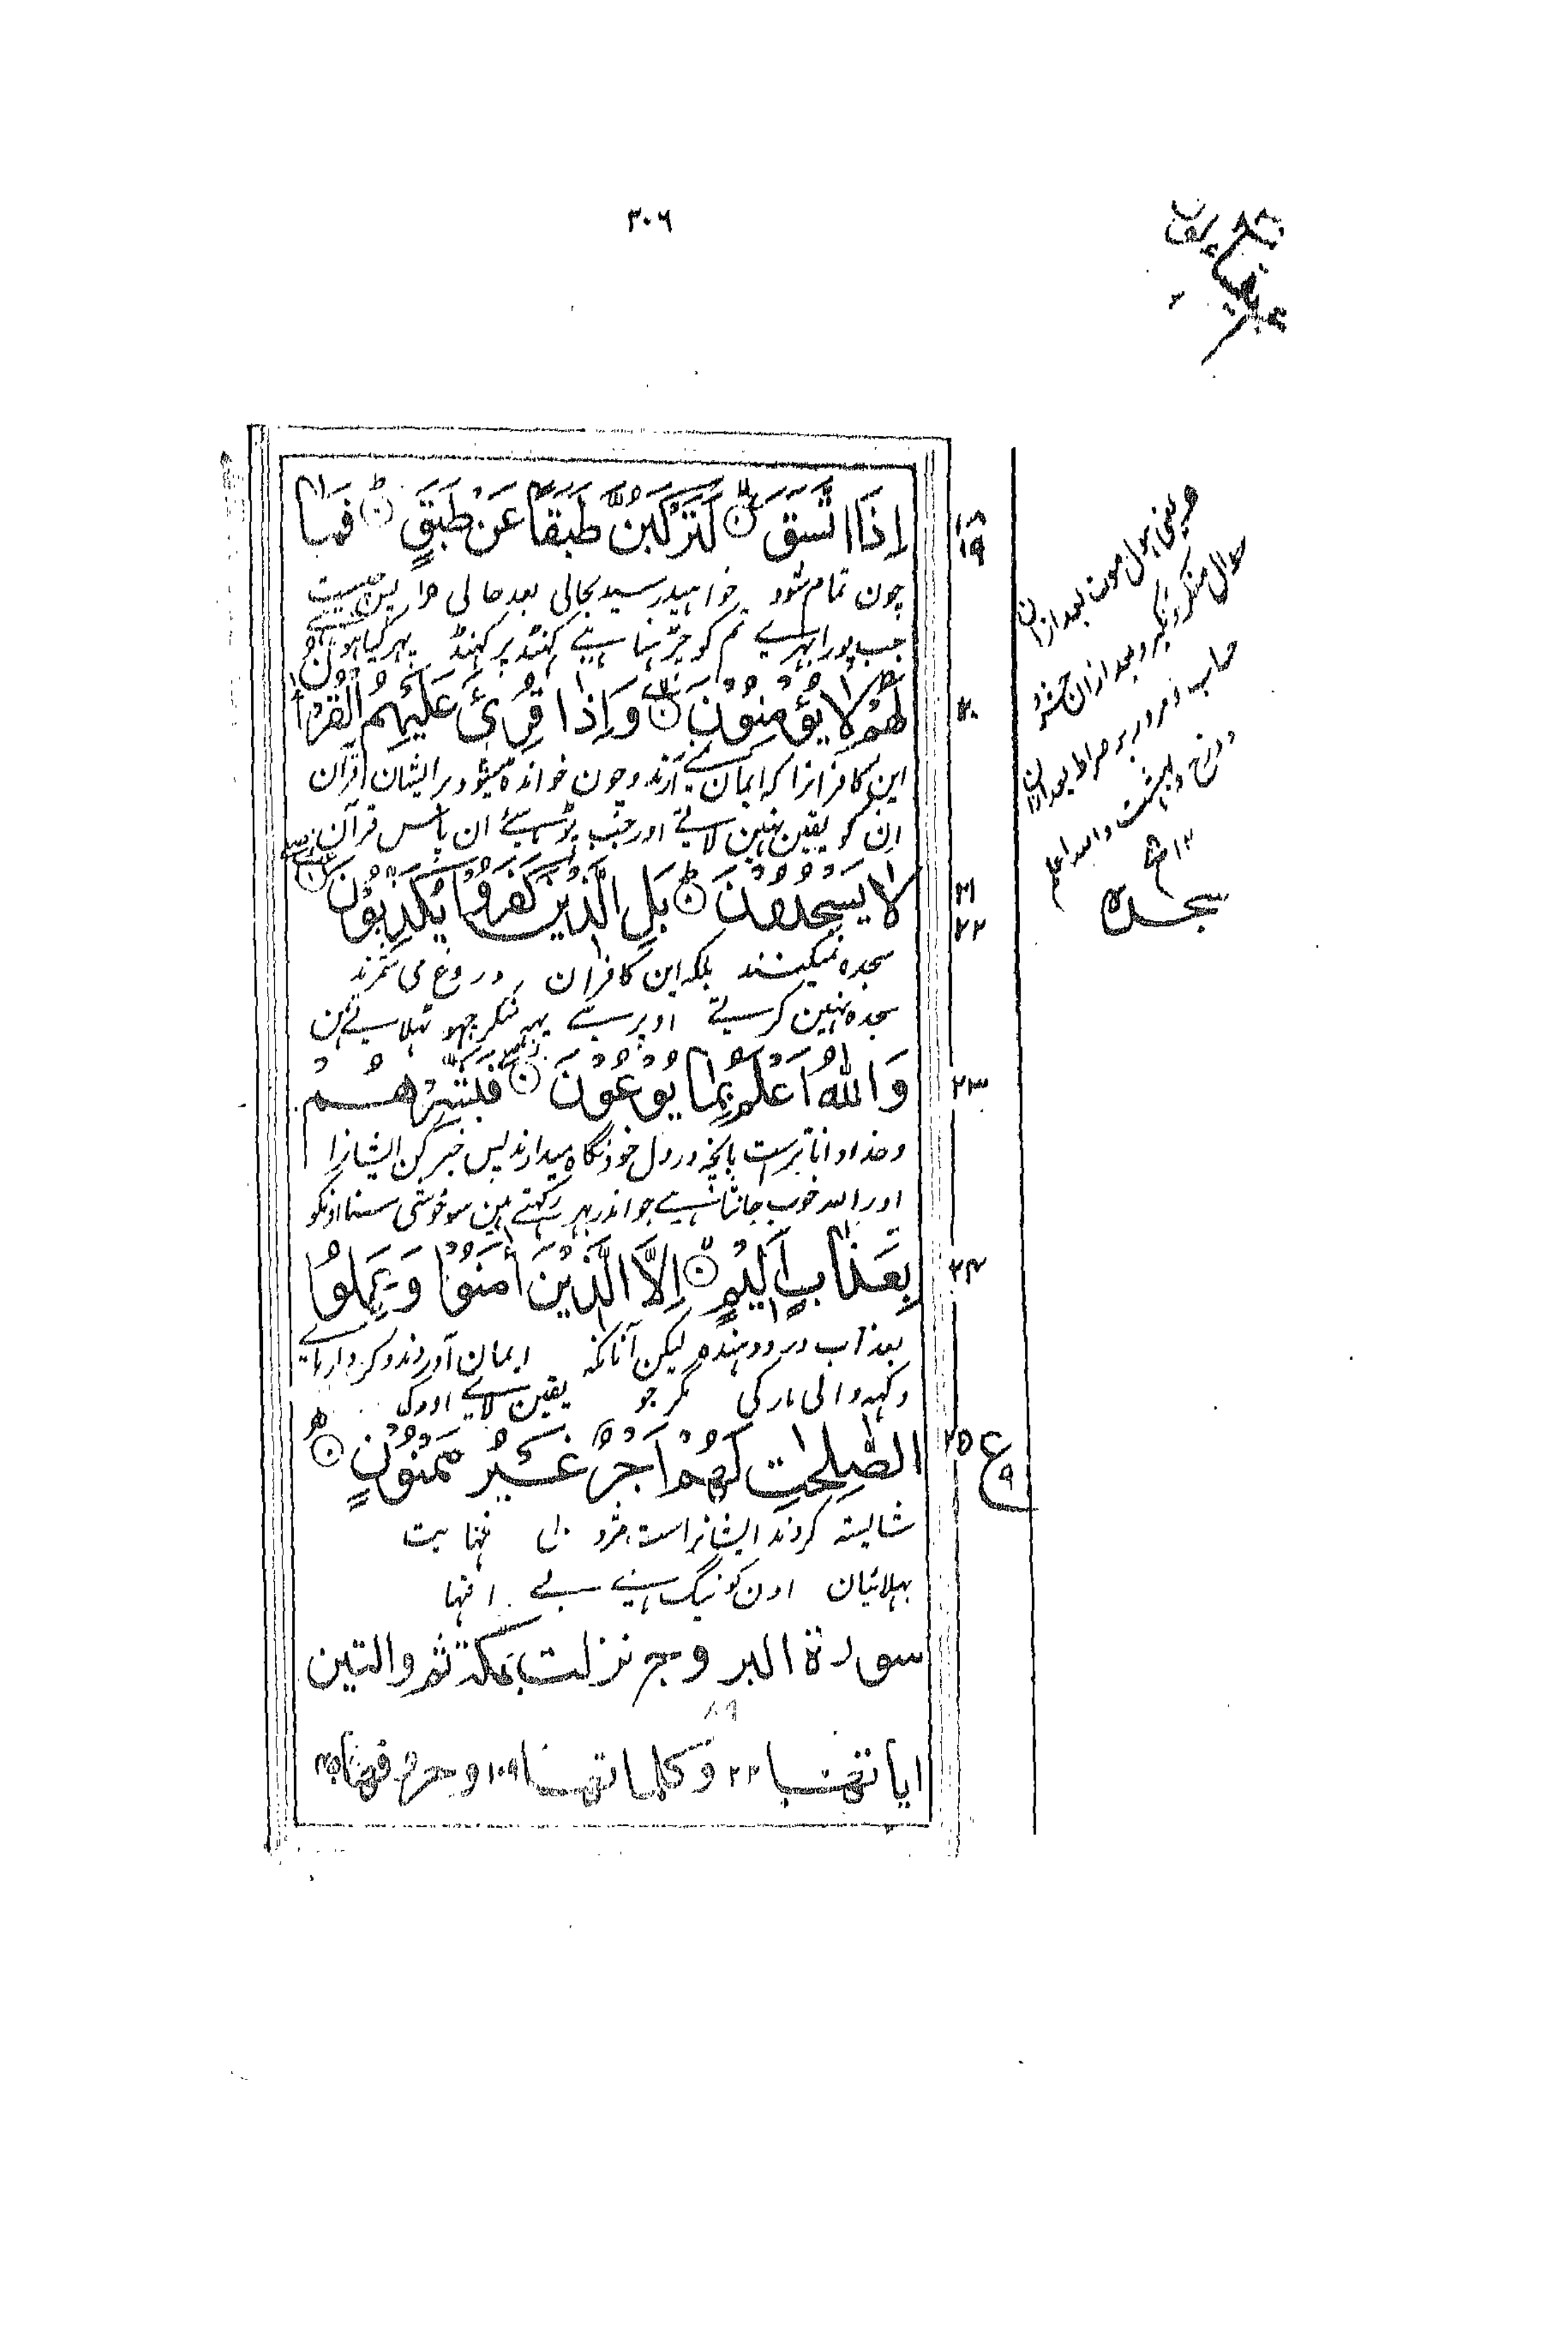 ۳۰۶
اِذَا اتَّسَقَ ۝ لَتَرْكَبُنَّ طَبَقًا عَنْ طَبَقٍ ۝ فَمَا
۱۸
۱۹
چون تمام شود خواهید رسید بحالی بعد حالی پس چیست
جب پورا بهرے تم کو چڑہنا ہے کہنڈ پر کہنڈ پہر کیا ہوا ہے
لَهُمْ لَا يُؤْمِنُوْنَ ۝ وَاِذَا قُرِئَ عَلَيْهِمُ الْقُرْاٰنُ
۲۰
این کافرانرا کہ ایمان نمے آرند و چون خوانده میشود بر ایشان قرآن
ان کو یقین نہین لاتے اور جب پڑہیئے ان پاس قرآن
لَا يَسْجُدُوْنَ ۝ بَلِ الَّذِيْنَ كَفَرُوْا يُكَذِّبُوْنَ ۝
۲۱
۲۲
سجده نمیکنند بلکہ این کافران دروغ می شمرند
سجده نہین کرتے اوپر سے یہ منکر جہوٹهلاتے ہن
وَاللّٰهُ اَعْلَمُ بِمَا يُوْعُوْنَ ۝ فَبَشِّرْهُمْ
۲۳
و خدا داناتر ست بآنچه در دل خود نگاه میدارند پس خبر کن ایشانرا
اور اللہ خوب جانتا ہے جو اندر بہر رکہتے ہین سو خوشی سنا اونکو
بِعَذَابٍ اَلِيْمٍ ۝ اِلَّا الَّذِيْنَ اٰمَنُوْا وَعَمِلُوا
۲۴
بعذاب درد دہنده لیکن آنانکہ ایمان آوردند و کردارہاے
دکہہ والی مار کی مگر جو یقین لاے اور کی
الصّٰلِحٰتِ لَهُمْ اَجْرٌ غَيْرُ مَمْنُوْنٍ ۝
۲۵ ع ۹
شایستہ کردند ایشانراست مزد بی نہایت
بہلائیان اون کو نیگ ہے بے انتہا
سورة البروج نزلت بمكة ثم والتين
اياتهنا ۲۲ وكلماتهنا ۱۰۹ وحروفهنا
یعنی اول موت بعد ازان
سوال منکر و نکیر و بعد ازان حشر و
حساب و مرور بر صراط بعد ازان
دوزخ و بہشت والله اعلم
۱۲
سجده